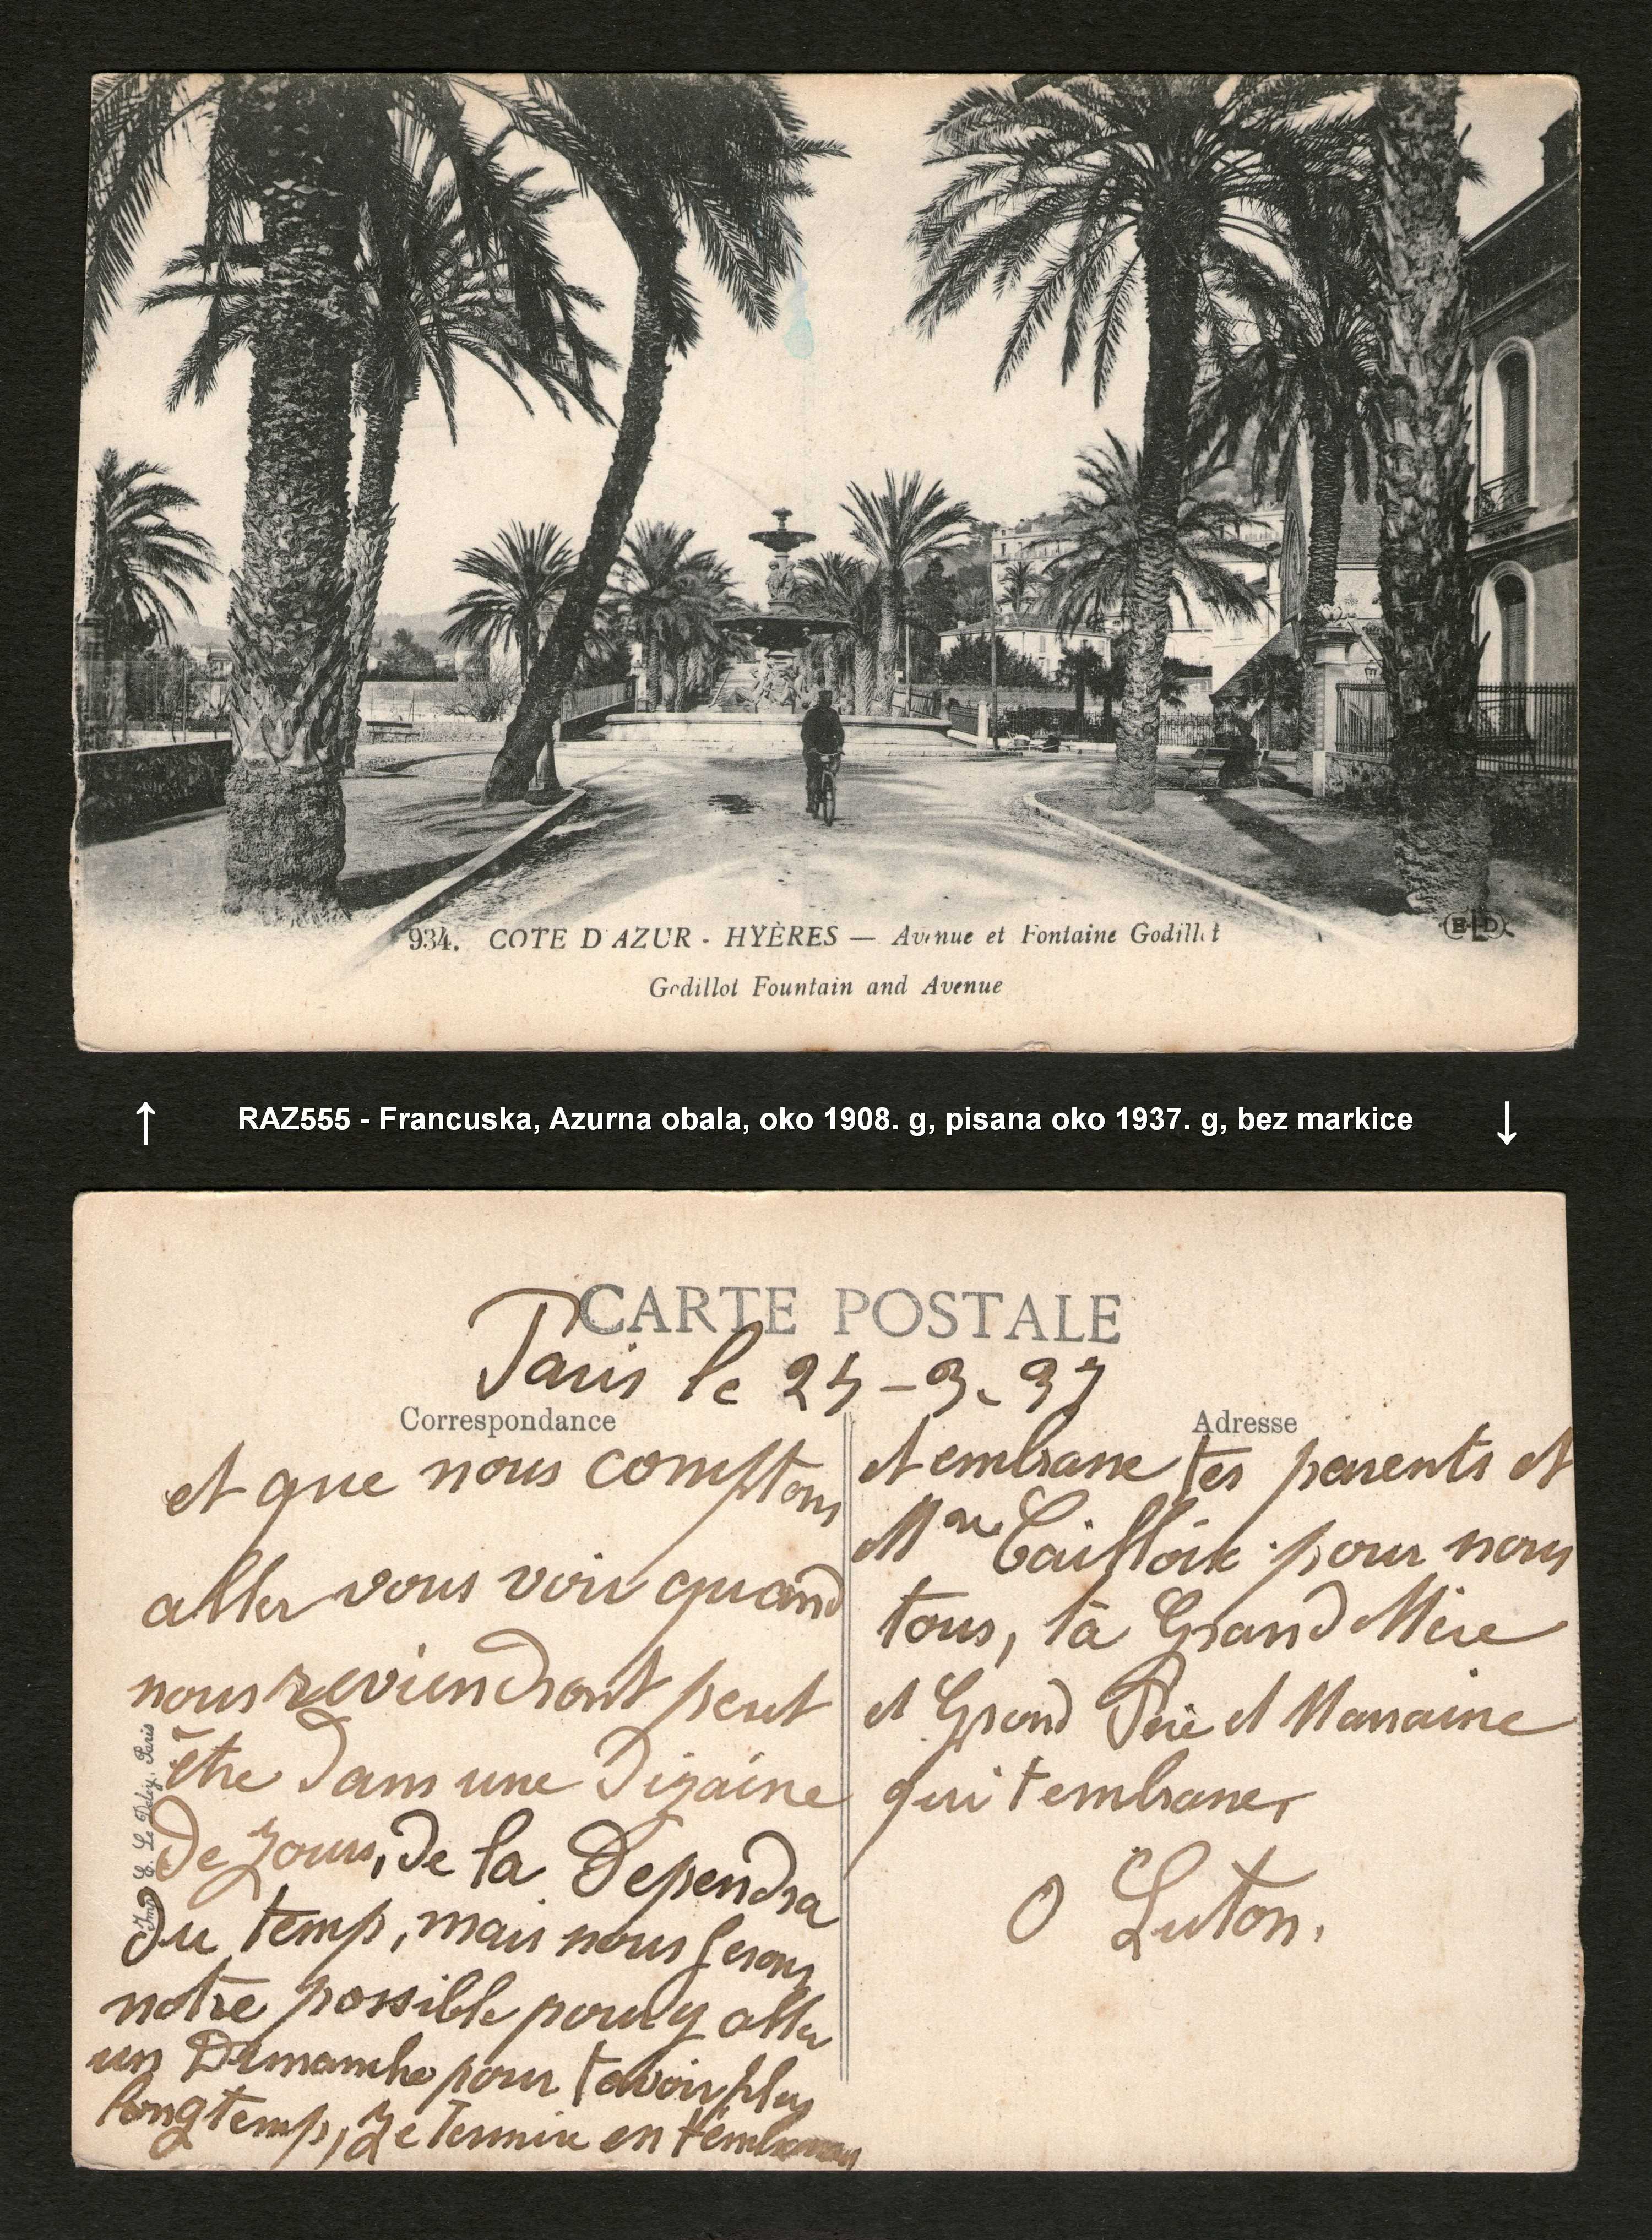 934. COTE D'AZUR - HYÈRES — Avenue et Fontaine Godillot
ELD
Godillot Fountain and Avenue
↑ RAZ555 - Francuska, Azurna obala, oko 1908. g, pisana oko 1937. g, bez markice ↓
CARTE POSTALE
Paris le 25-3-37
Correspondance
et que nous comptons
aller vous voir quand
nous reviendront peut
être dans une Dizaine
De Jours, De la Dependra
Du temp, mais nous ferons
notre possible pour y aller
un Dimanche pour tavoir plus
longtemp, Je termine en t'embrassant
Imp. E. Le Deley, Paris
Adresse
et embrasse tes parents et
Mme pour nous
tous, ta Grand Mère
et Grand Père et Marraine
qui t'embrasse,
O Luton.